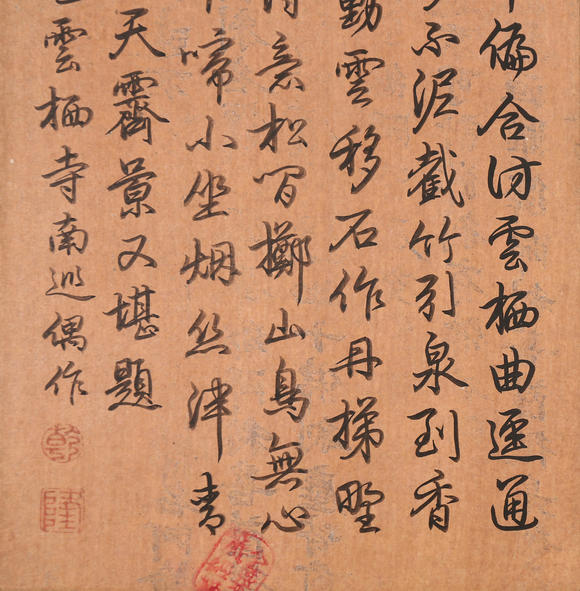 偏合訪雲栖曲逕通
不泥截竹引泉到香
勤雲移石作丹梯野
得意松間擲山鳥無心
啼小坐烟青
天霽景又堪題
雲栖寺南巡偶作
乾
隆